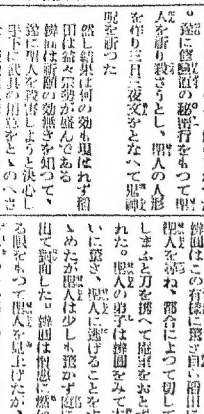 。遂に修驗道の秘密行をもつて聖
人を祈り殺さうとし、聖人の人形
を作り三日三夜文をとなへて鬼神
呪を祈つた
然し結果は何の効も現はれず稻
田は益々宗弟が盛んである
圓は祈願の効無きを知つて、
遂に聖人を殺害しようと決心し
手下に武具の用意をとゝのへさ
圓はこの有樣に驚き自ら稻田に
聖人を尋ね、都合によつて切して
しまふと刀を携へて庵室をおと
れた。聖人の弟子は圓をみて大
いに驚き、聖人に逃げることをす
ゝめたが聖人は少しも驚かず
出て對面した。圓は憎惡に燃
る眼をもつて聖人を見上げたが、